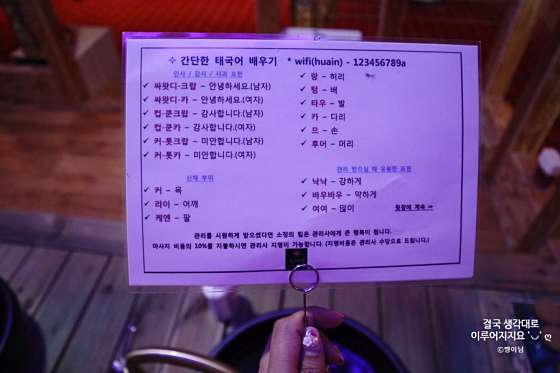 ✧ 간단한 태국어 배우기 * wifi(huain) - 123456789a
인사 / 감사 / 사과 표현
✓ 싸왓디-크랍 – 안녕하세요.(남자)
✓ 싸왓디-카 – 안녕하세요.(여자)
✓ 컵-쿤크랍 – 감사합니다.(남자)
✓ 컵-쿤카 – 감사합니다.(여자)
✓ 커-톳크랍 – 미안합니다.(남자)
✓ 커-톳카 – 미안합니다.(여자)
신체 부위
✓ 커 – 목
✓ 라이 – 어깨
✓ 켄 – 팔
✓ 랑 – 허리
✓ 텅 – 배
✓ 타우 – 발
✓ 카 – 다리
✓ 므 – 손
✓ 후어 – 머리
관리 받으실 때 유용한 표현
✓ 낙낙 – 강하게
✓ 바우바우 – 약하게
✓ 여여 – 많이
뒷장에 계속 ⇒
관리를 시원하게 받으셨다면 소정의 팁은 관리사에게 큰 행복이 됩니다.
마사지 비용의 10%를 지불하시면 관리사 지명이 가능합니다. (지명비용은 관리사 수당으로 드립니다.)
결국 생각대로
이루어지지요 '◡' ღ
©쨍이님